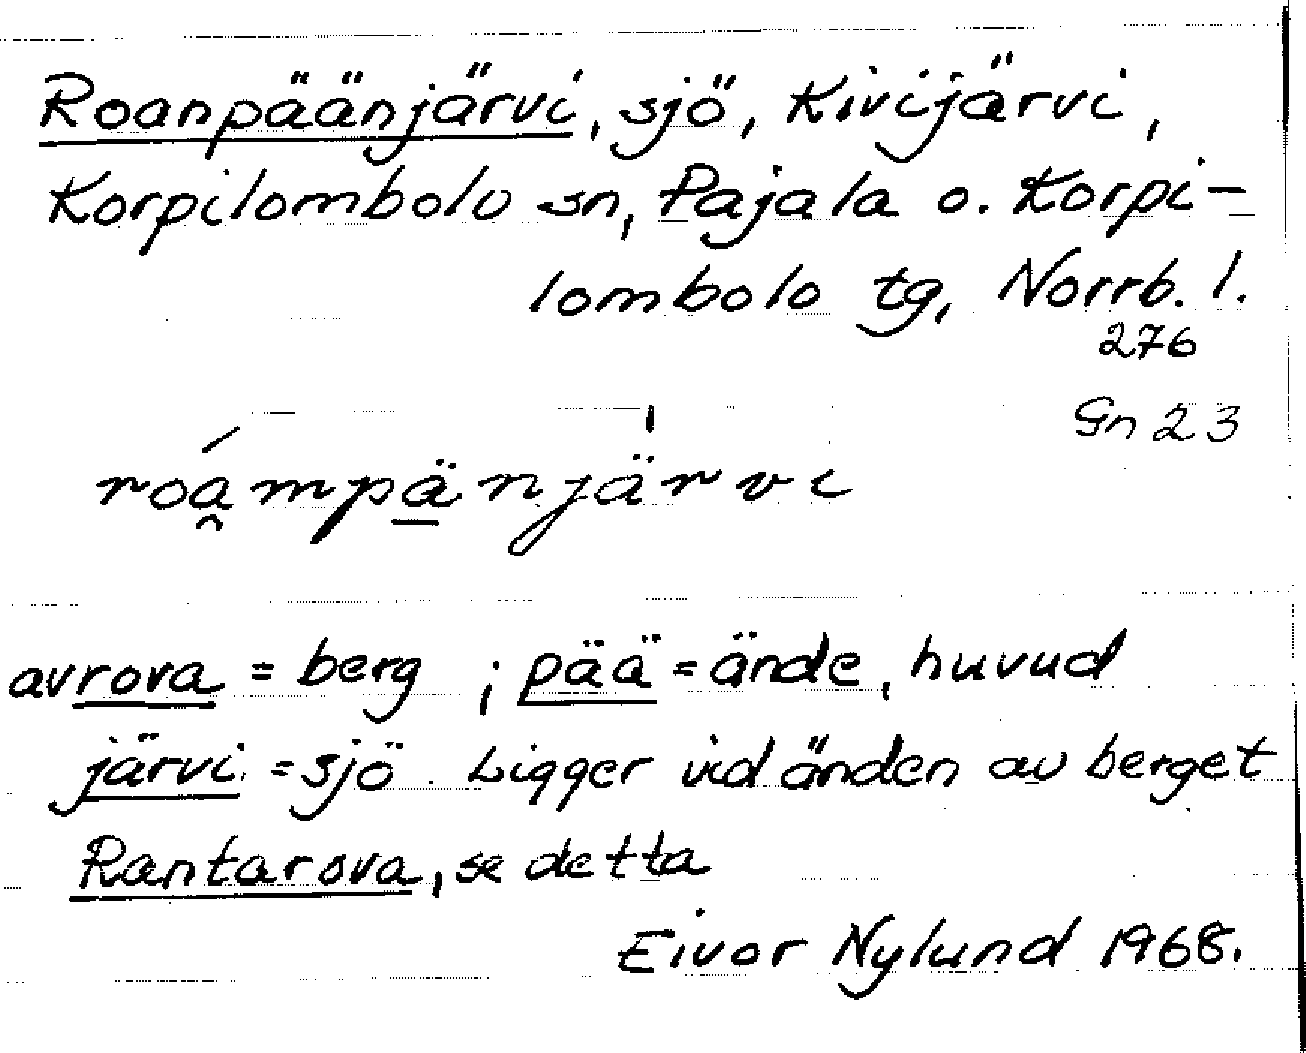 Roanpäänjärvi, sjö, Kivijärvi,
Korpilombolo sn, Pajala o. Korpi-
lombolo tg, Norrb. l.
276
Gn 23
roá̯mpä̱njä̍rvi
av rova = berg ; pää = ände, huvud
järvi = sjö. Ligger vid änden av berget
Rantarova, se detta
Eivor Nylund 1968.